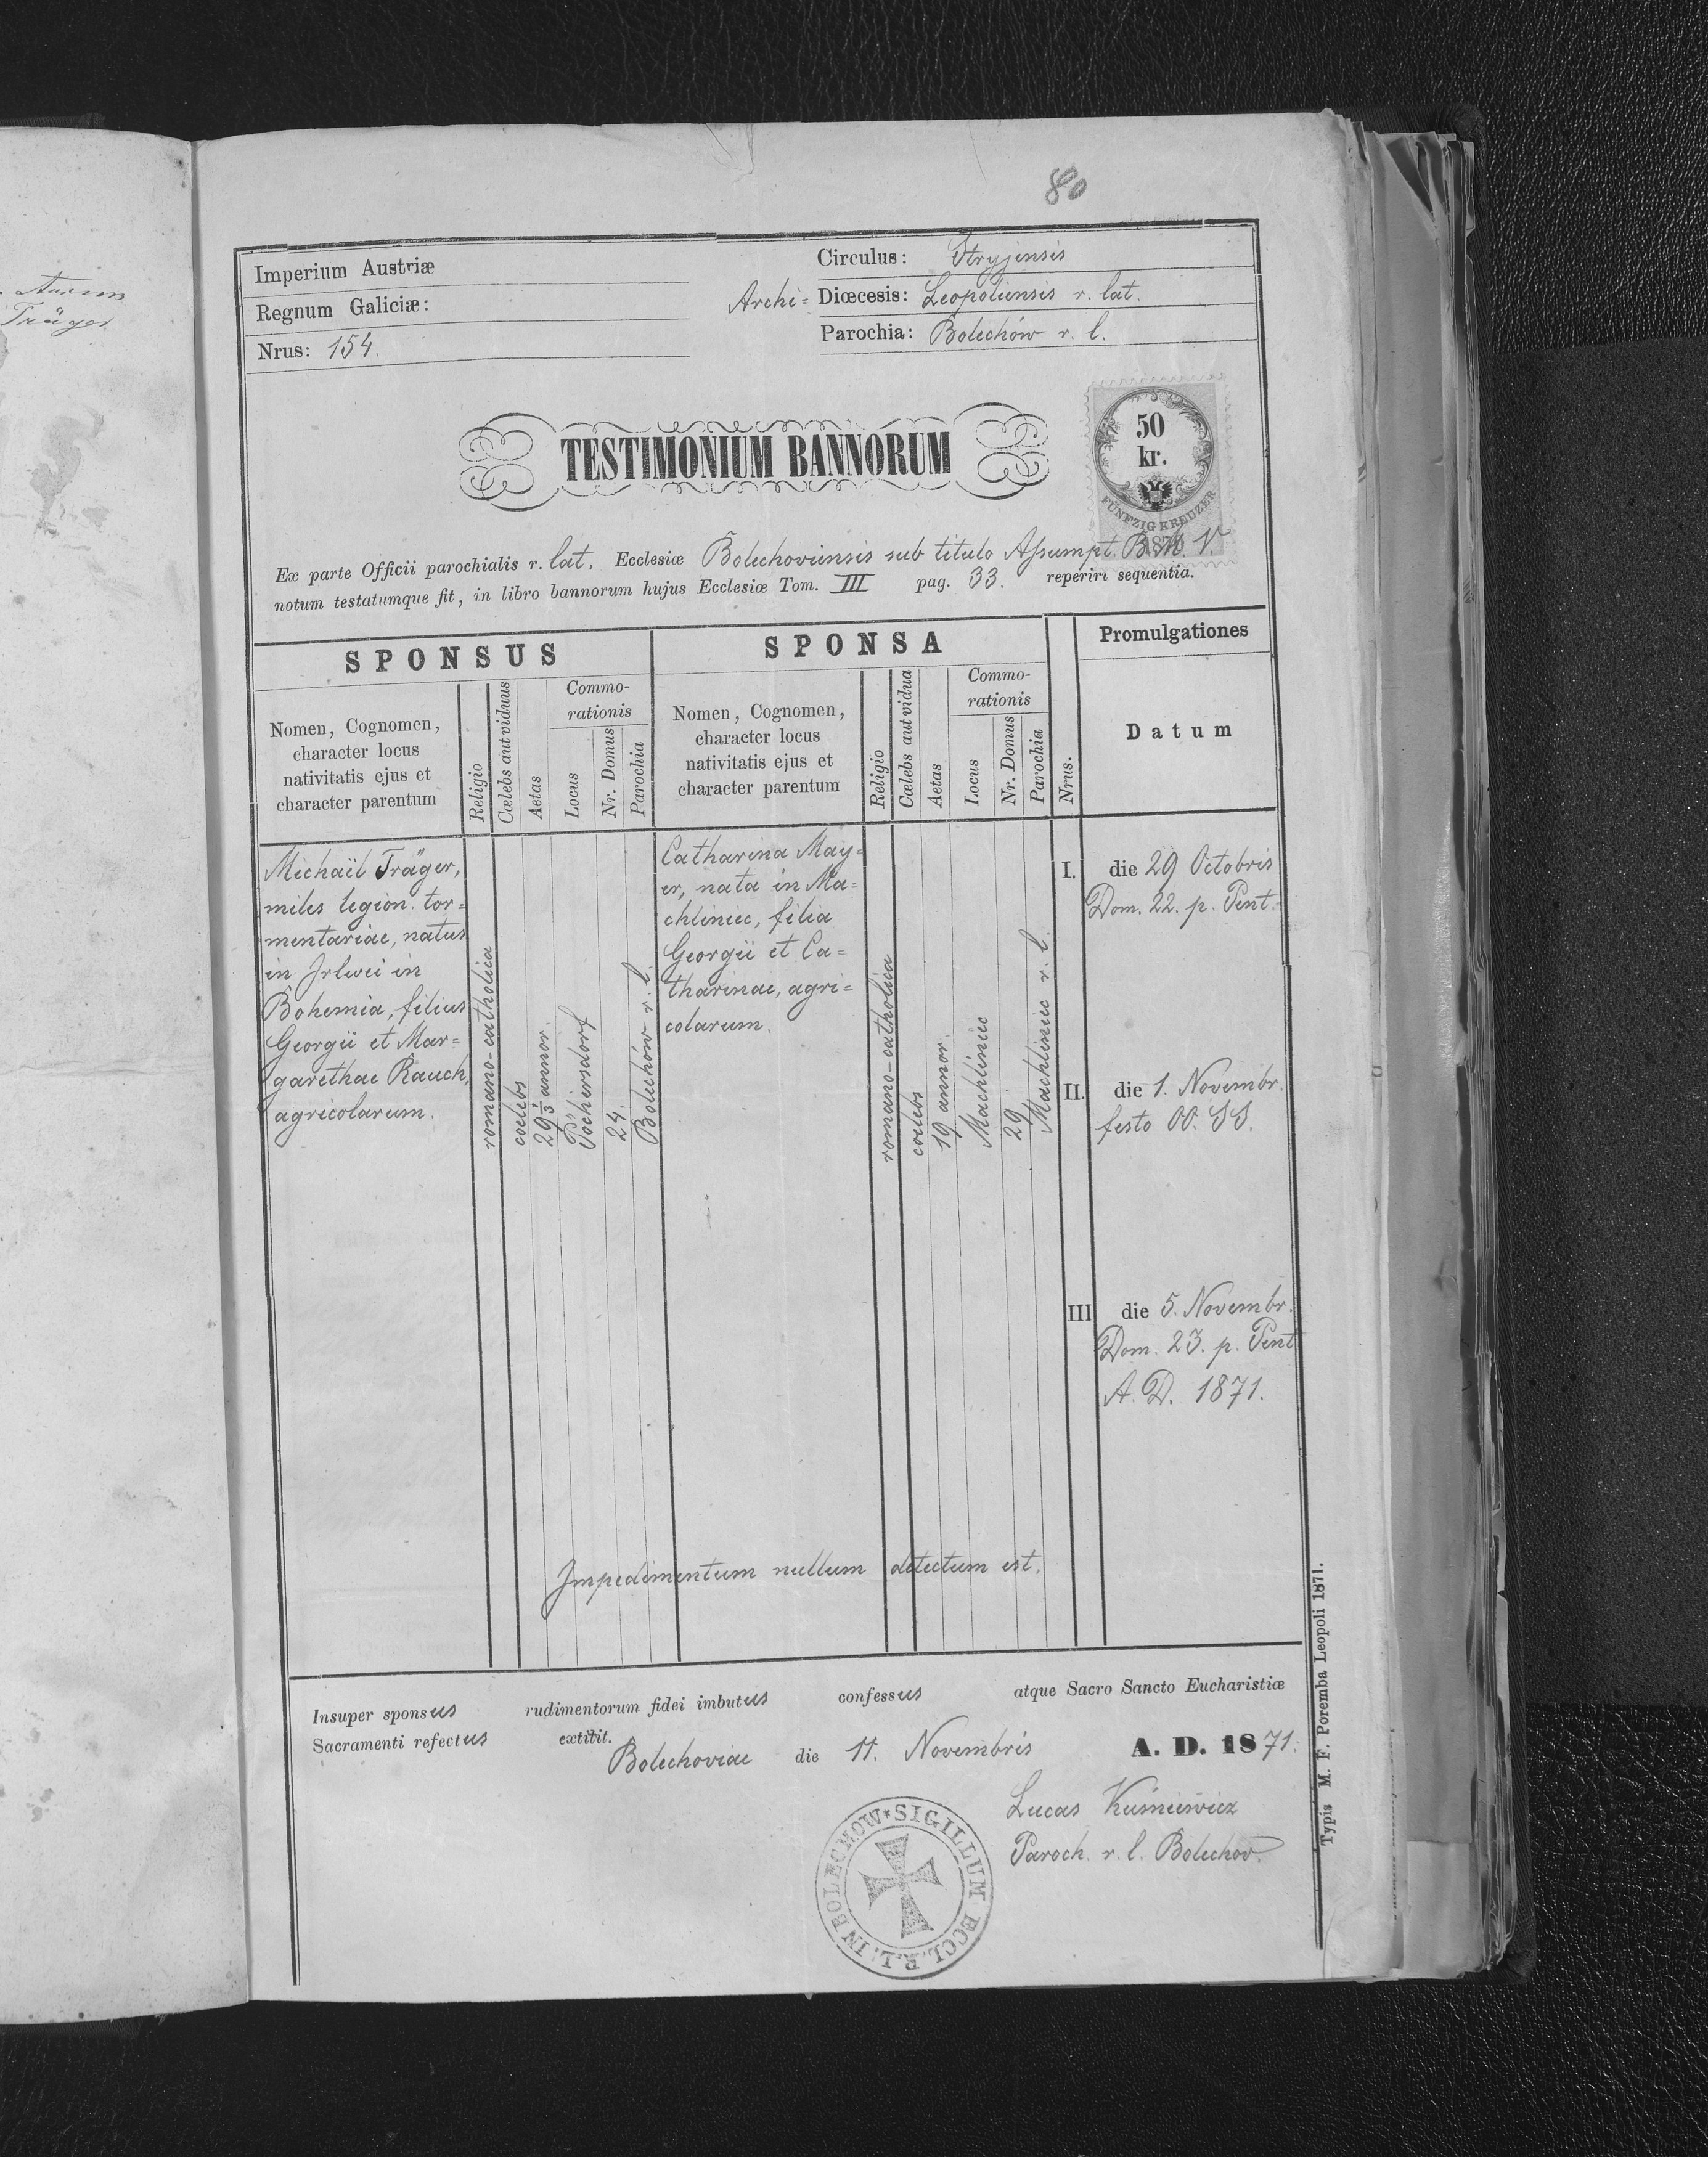 80
Auxum
Träger
Imperium Austriæ
Circulus: Stryjensis
Regnum Galiciæ:
Archi= Diœcesis: Leopoliensis r. lat.
Nrus: 154.
Parochia: Bolechów r. l.
50
kr.
FÜNFZIG KREUZER
1870
TESTIMONIUM BANNORUM
Ex parte Officii parochialis r. lat. Ecclesiæ Bolechoviensis sub titulo Assumpt. B. M. V.
notum testatumque fit, in libro bannorum hujus Ecclesiæ Tom. III pag. 33. reperiri sequentia.
SPONSUS
SPONSA
Nrus.
Promulgationes
Datum
Nomen, Cognomen,
character locus
nativitatis ejus et
character parentum
Religio
Cælebs aut viduus
Aetas
Commo-
rationis
Locus
Nr. Domus
Parochia
Nomen, Cognomen,
character locus
nativitatis ejus et
character parentum
Religio
Cælebs aut vidua
Aetas
Commo-
rationis
Locus
Nr. Domus
Parochia
Michaël Träger,
miles legion. tor=
mentariae, natus
in Jrlwei in
Bohemia, filius
Georgii et Mar=
garethae Rauch,
agricolarum.
romano-catholica
coelebs
29 1/3 annor.
Pöchersdorf
24.
Bolechów r. l.
Catharina May=
er, nata in Ma=
chliniec, filia
Georgii et Ca=
tharinae, agri=
colarum.
romano-catholica
coelebs
19 annor.
Machliniec
29
Machliniec r. l.
I. die 29 Octobris
Dom. 22. p. Pent.
II. die 1. Novembr.
festo OO. SS.
III die 5. Novembr.
Dom. 23. p. Pent
A. D. 1871.
Impedimentum nullum detectum est.
Insuper sponsus rudimentorum fidei imbutus confessus atque Sacro Sancto Eucharistiæ
Sacramenti refectus extitit.
Bolechoviae die 11. Novembris A. D. 1871.
Lucas Kuśniewicz
Paroch. r. l. Bolechov.
SIGILLUM ECCL. R. L. IN BOLECHOW *
Typis M. F. Poremba Leopoli 1871.